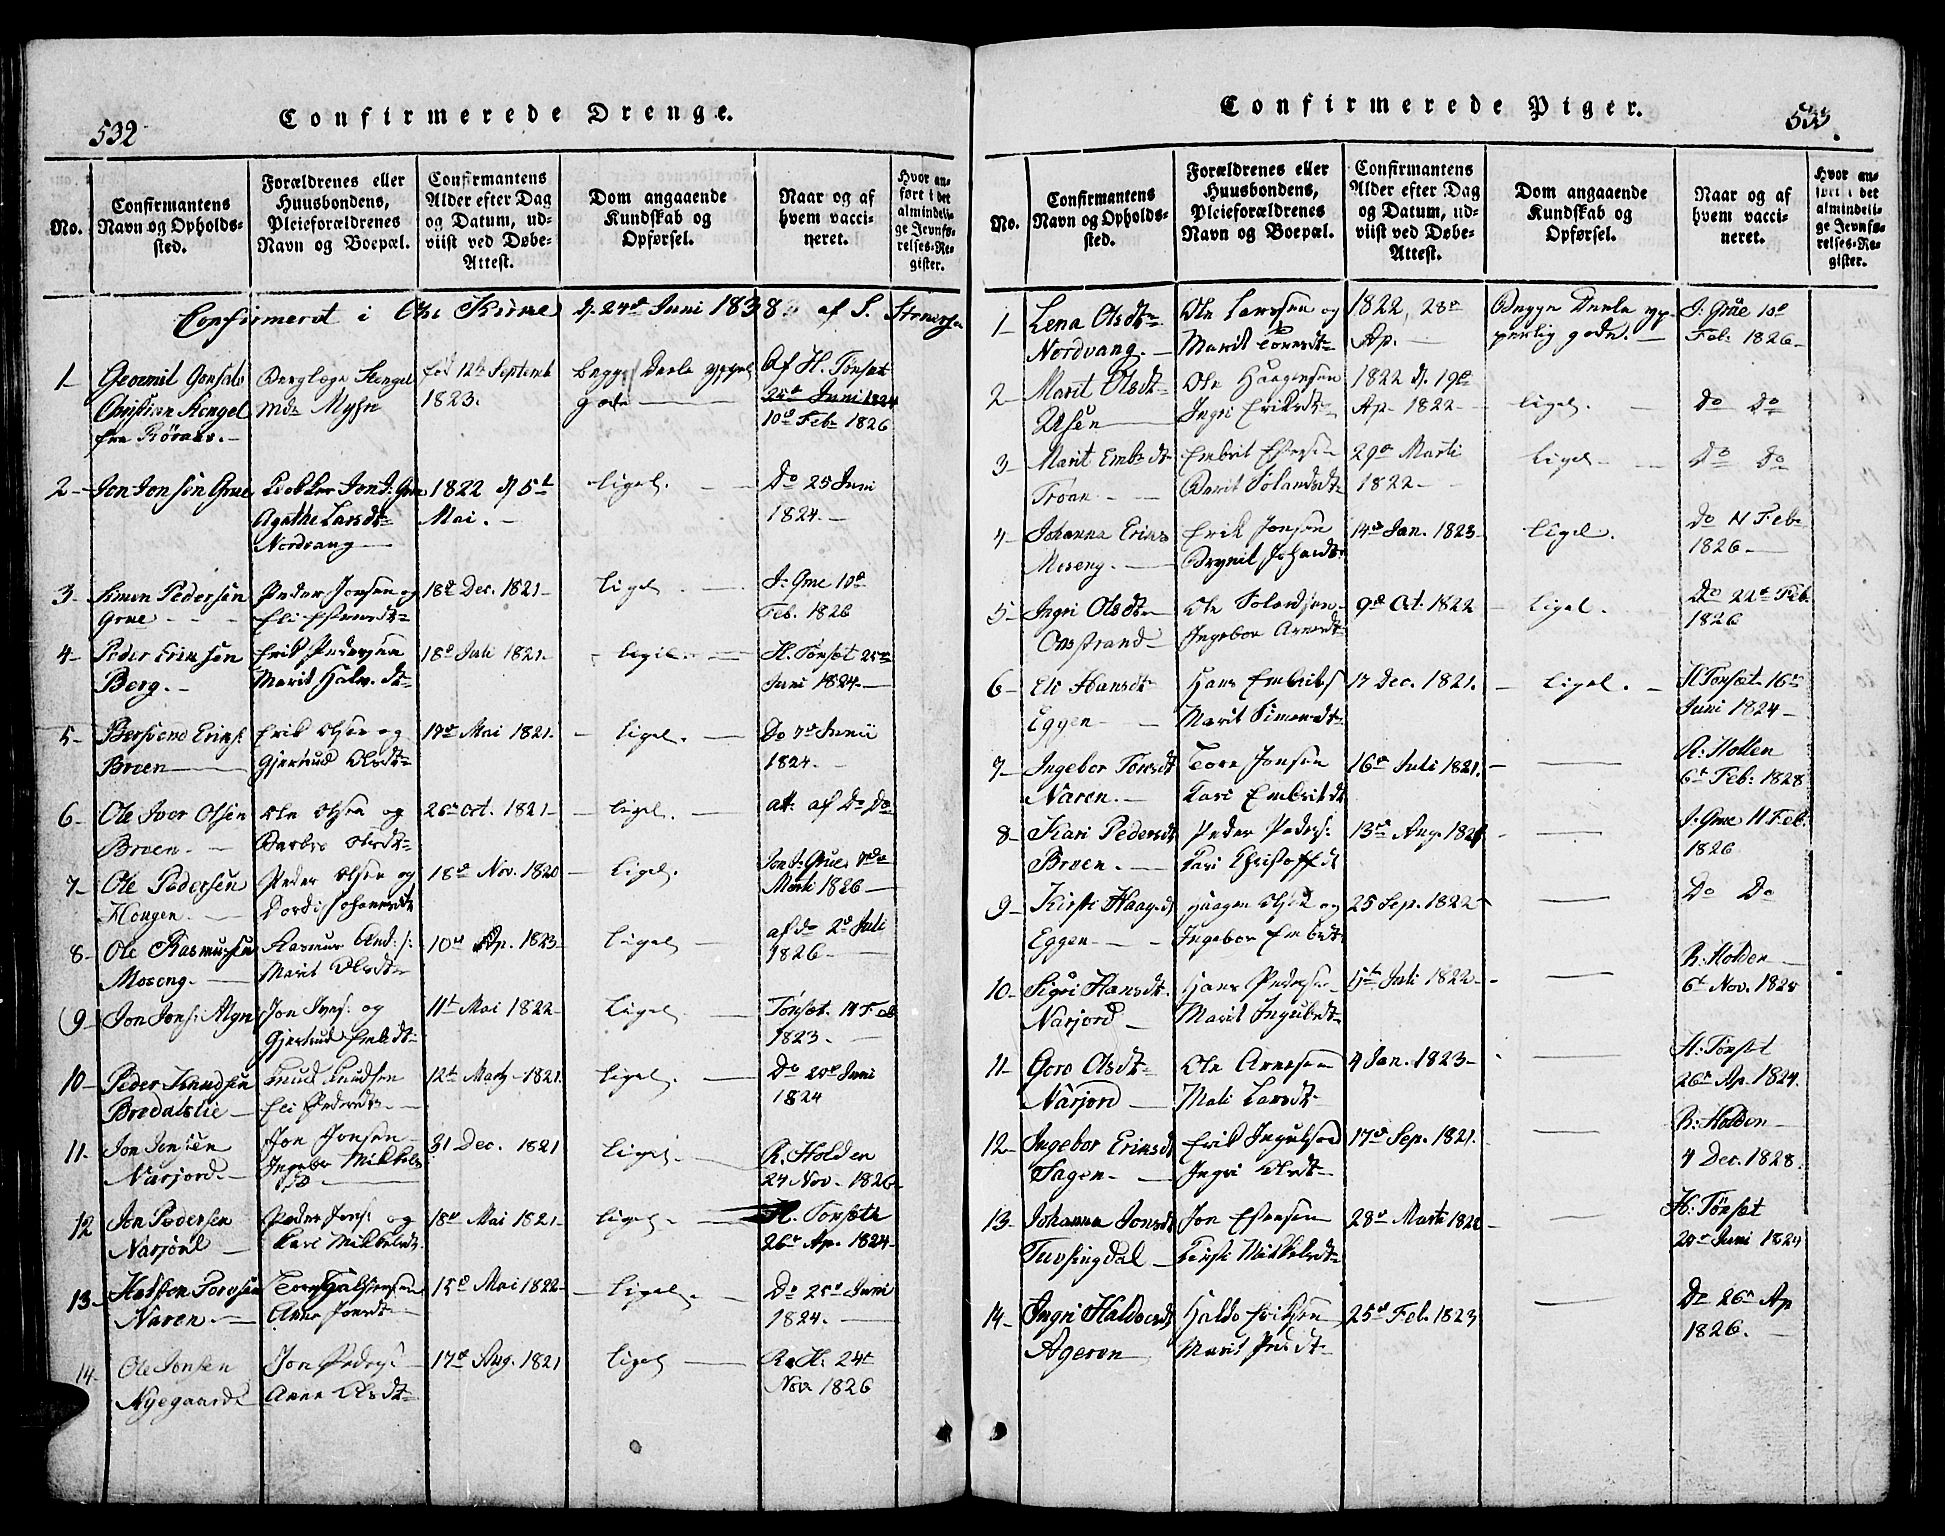 532
Confirmerede Drenge.
No.
Confirmantens
Navn og Opholds-
sted.
Forældrenes eller
Huusbondens,
Pleieforældrenes
Navn og Boepæl.
Confirmantens
Alder efter Dag
og Datum, ud-
viist ved Døbe-
Attest.
Dom angaaende
Kundskab og
Opførsel.
Naar og af
hvem vacci-
neret.
Hvor an-
ført i det
almindeli-
ge Jevnfø-
relses-Re-
gister.
Confirmeret i Os Kirke d. 24de Juni 1838 af S.
1
Christian Stengel
fra Røraas.
Stengel
12te Septemb
1823.
begge Deele
gode
Af H. Tønset
25de Juni 1824
10de Feb. 1826
2
Jon Jonsen Grue
Klokker Jon J. Grue
Agathe Larsdt
Nordvang
1822 d 5t
Mai.
ligel.
Do 25 Juni
1824.
3
Simen Pedersen
Grue
Peder Jonsen og
Eli Estensdt
18de Dec. 1821
ligel
J. Grue 10de
Feb. 1826
4
Peder Ericksen
Berg.
Erik Pedersen
Marit Halv. dt
18de Juli 1821.
ligel.
H. Tønset 25de
Juni 1824
5
Bersvend Erics.
Broen
Erik Olsen og
Gjertrud Olsdt
Mai 1821.
ligel.
Do 7de Junii
1824.
6
Ole Iver Olsen
Broen.
Ole Olsen og
Barbro Olsdt
26de Oct. 1821
ligel.
att. af Do Do
7
Ole Pedersen
Hougen.
Peder Olsen og
Dordi Johannesdt
18de Nov. 1820
ligel.
Jon J. Grue
Marti 1826
8
Ole Rasmussen
Moseng.
Rasmus And:
Marit Olsdt
10de Ap. 1823
ligel
af do 2de Juli
1826
9
Jon Jons. Algn
Jon Jons. og
Gjertrud Embdt
11t Mai 1822
ligel
Tønset. 14 Feb
1823.
10
Peder Knudsen
Bredalslie
Knud Knudsen
Eli Pedersdt
12t Marty 1821.
ligel.
Do 20de Juni
1824
11.
Jon Jonsen
Narjord.
Jon Jonsen
Ingebor Mikkels
D
31 Dec. 1821
ligel.
R. Holden
24 Nov. 1826
12
Jon Pedersen
Narjord
Peder Jons: og
Kari Mikkelsdt.
18de Mai 1821
ligel.
H. Tønset
26de Ap. 1824
13
Halsten Toresen
Naren.
Tore Halstensen
Anne Jonsdt
15de Mai 1822
ligel.
Do 25de Juni
1824.
14
Ole Jonsen
Nyegaard
Jon Peders:
Anne Olsdt
17de Aug. 1821
ligel
R. H. 24t
Nov 1826
Confirmerede Piger.
533.
No.
Confirmantens
Navn og Opholds-
sted.
Forældrenes eller
Huusbondens,
Pleieforældrenes
Navn og Boepæl.
Confirmantens
Alder efter Dag
og Datum, ud-
viist ved Døbe-
Attest.
Dom angaaende
Kundskab og
Opførsel.
Naar og af
hvem vacci-
neret.
Hvor an-
ført i det
almindeli-
ge Jevnfø-
relses-Re-
gister.
1
Lena Olsdt
Nordvang.
Ole Larssen og
Marit Toresdt
1822, 28de
Ap.
Begge Deele yp-
perlig gode.
J. Grue 10de
Feb. 1826
2
Marit Olsdt
Usen
Ole Haagensen
Ingri Eriksdt
1822 d. 19de
Ap. 1822
ligel.
Do Do
3
Marit Embr dt
Troan
Embrit Estensen
Berit Tolansdt
29de Marti
1822
ligel
Do Do
4
Johanna Erics
Moseng.
Erik Jonsen
Brynil Johansdt
14de Jan. 1823
ligel.
Do 11 Feb.
1826
5
Ingri Olsdt
Osstrand
Ole
Ingebor Arnesdt
9de Oct. 1822
ligel.
Do 22de Feb.
1826
6
Eli Hansdt
Eggen
Hans Embrits
Marit Simensdt
17 Dec. 1821.
ligel.
H Tønset 16de
Juni 1824
7
Ingebor Toresdt
Naren.
Tore Jonsen
Kari Embritsdt
16de Juli 1821.
R. Holden
6te Feb: 1828
8
Kari Pedersdt
Broen
Peder Peders:
Kari Christoffdt
13de Aug. 1821
J. Grue 11 Feb.
1826
9
Kirsti Haag.dt
Eggen
Haagen Olsen og
Ingebor Embdt
25 Sep. 1822
Do Do
10
Sigri Hansdt
Narjord
Hans Peders
Marit Ingebrdt
5te Juli 1822
R. Holden
6t Nov. 1828
11
Goro Olsdt
Narjord
Ole Arnesen
Mali Larsdt
4 Jan. 1823
H. Tønset
26de Ap. 1824.
12
Ingebor Ericsdt
Sagen
Erik Ingulfsen
Ingri Olsdt
17de Sep. 1821.
R. Holden
4 Dec. 1828
13
Johanna Jonsdt
Tufsingdal
Jon Estensen
Kirsti Mikkelsdt
28de Marti 1822
H. Tønset
20de Juni 1824
14
Ingri Haldorsdt
Ageren
Haldo Eriksen
Marit Prsdt
25de Feb. 1823
Do 26de Ap
1826.